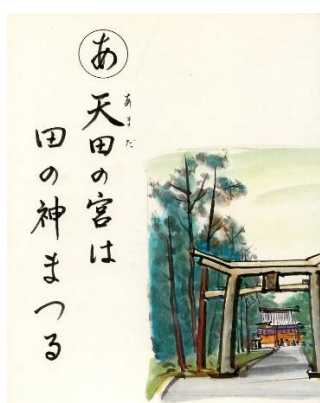 あ
天田の宮は
あまだ
田の神まつる